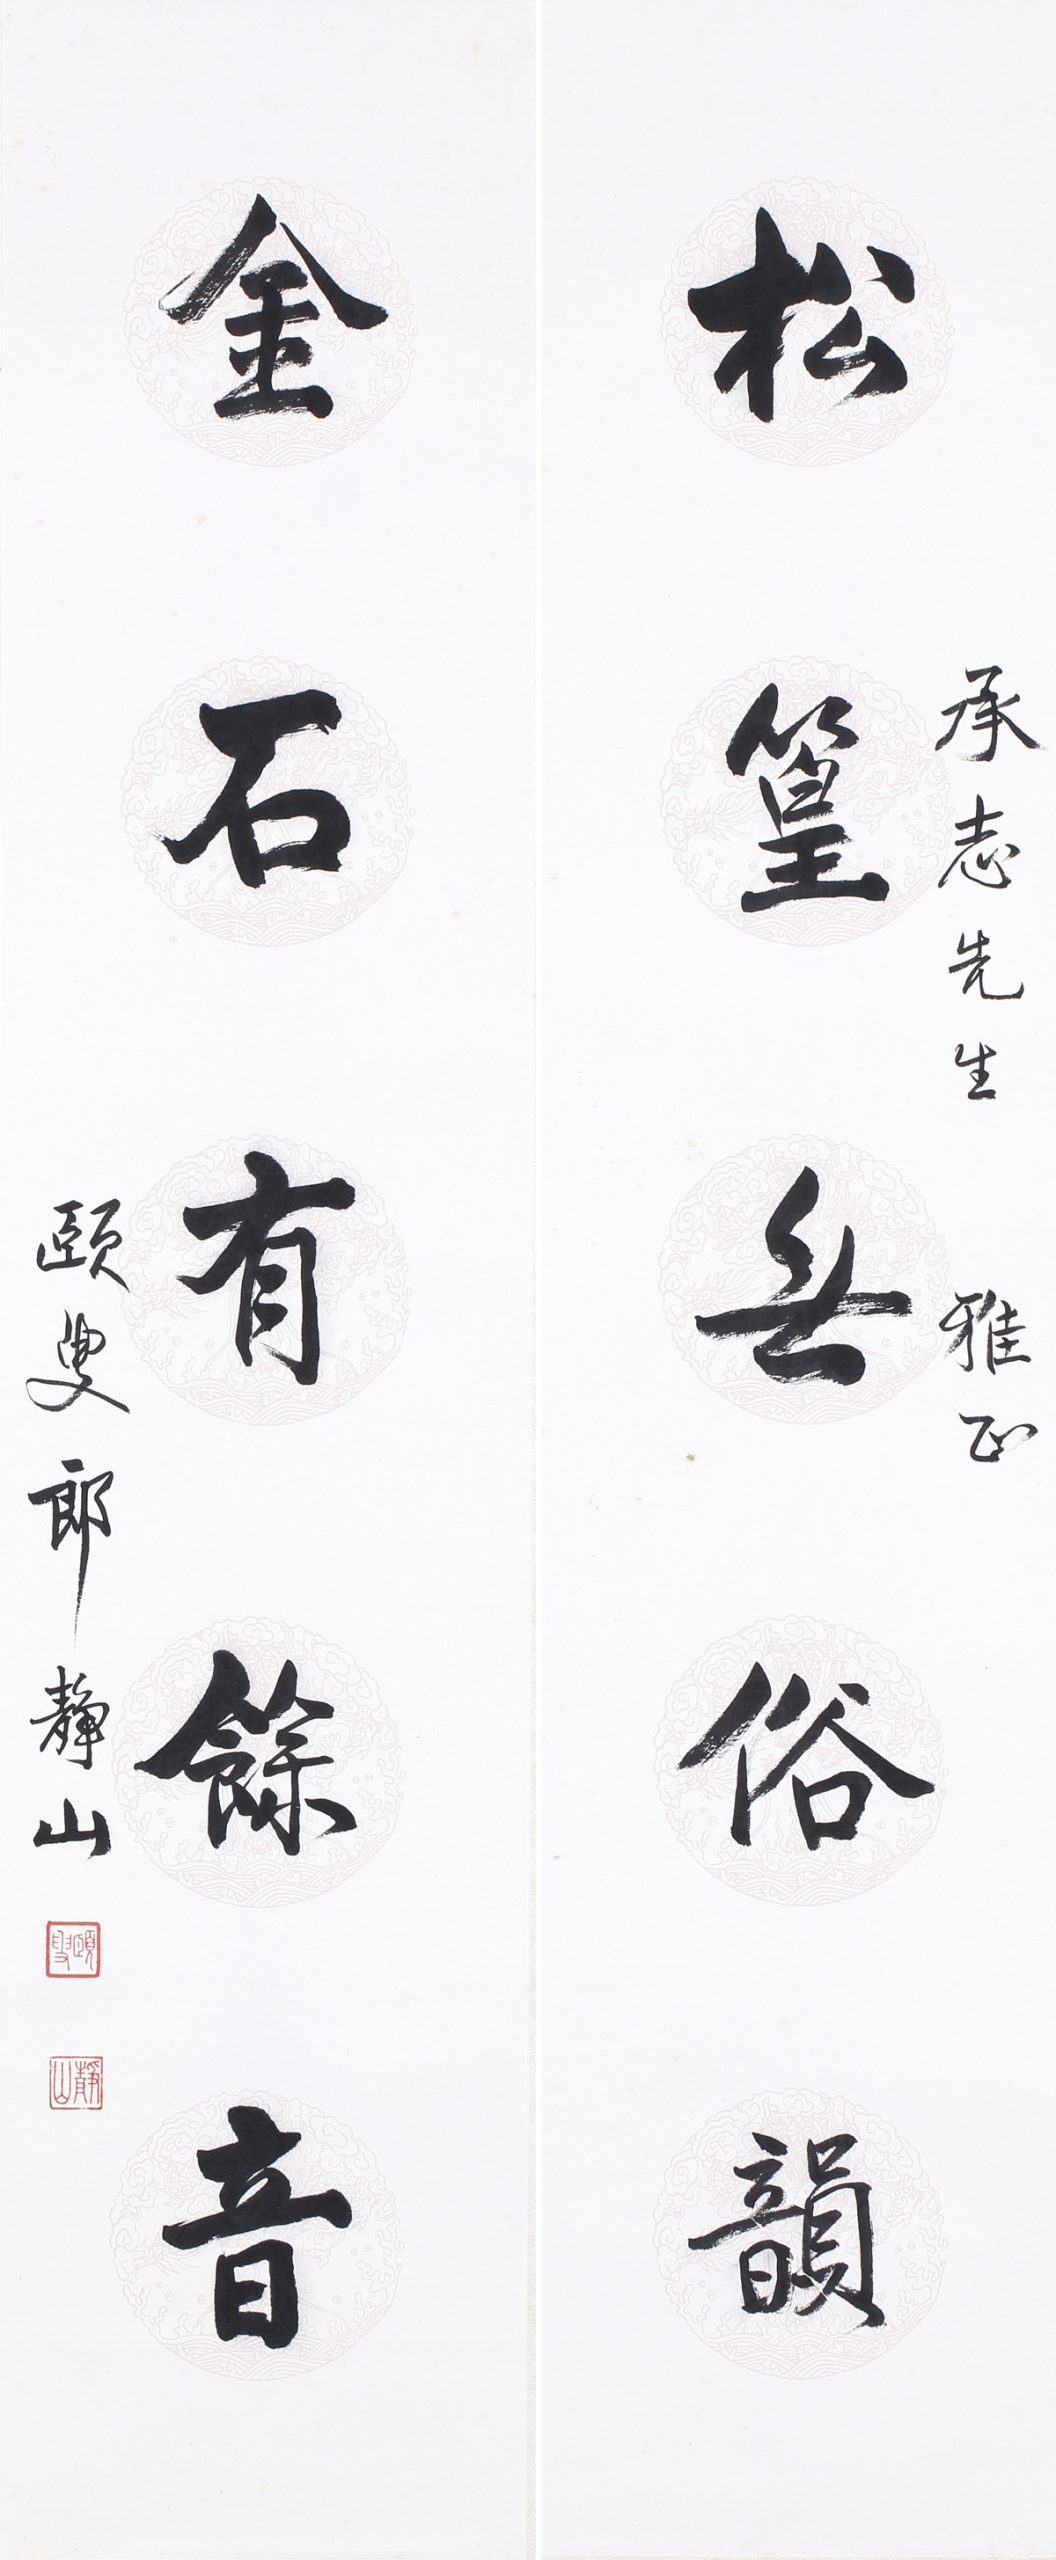 松篁無俗韻
承志先生 雅正
金石有餘音
頤叟郎靜山
頤叟
靜山